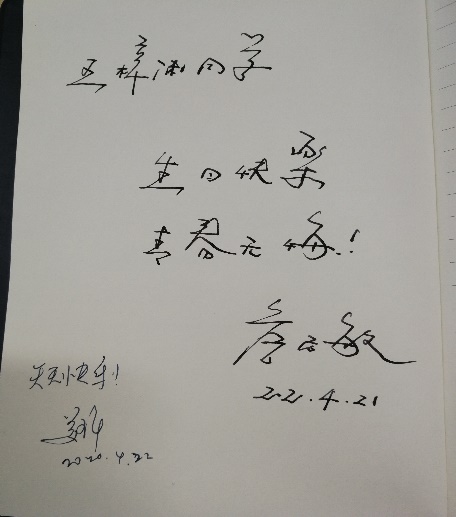 同学
生日快乐
青春无悔!
詹启敏
22.4.21
天天快乐!
2020.4.22